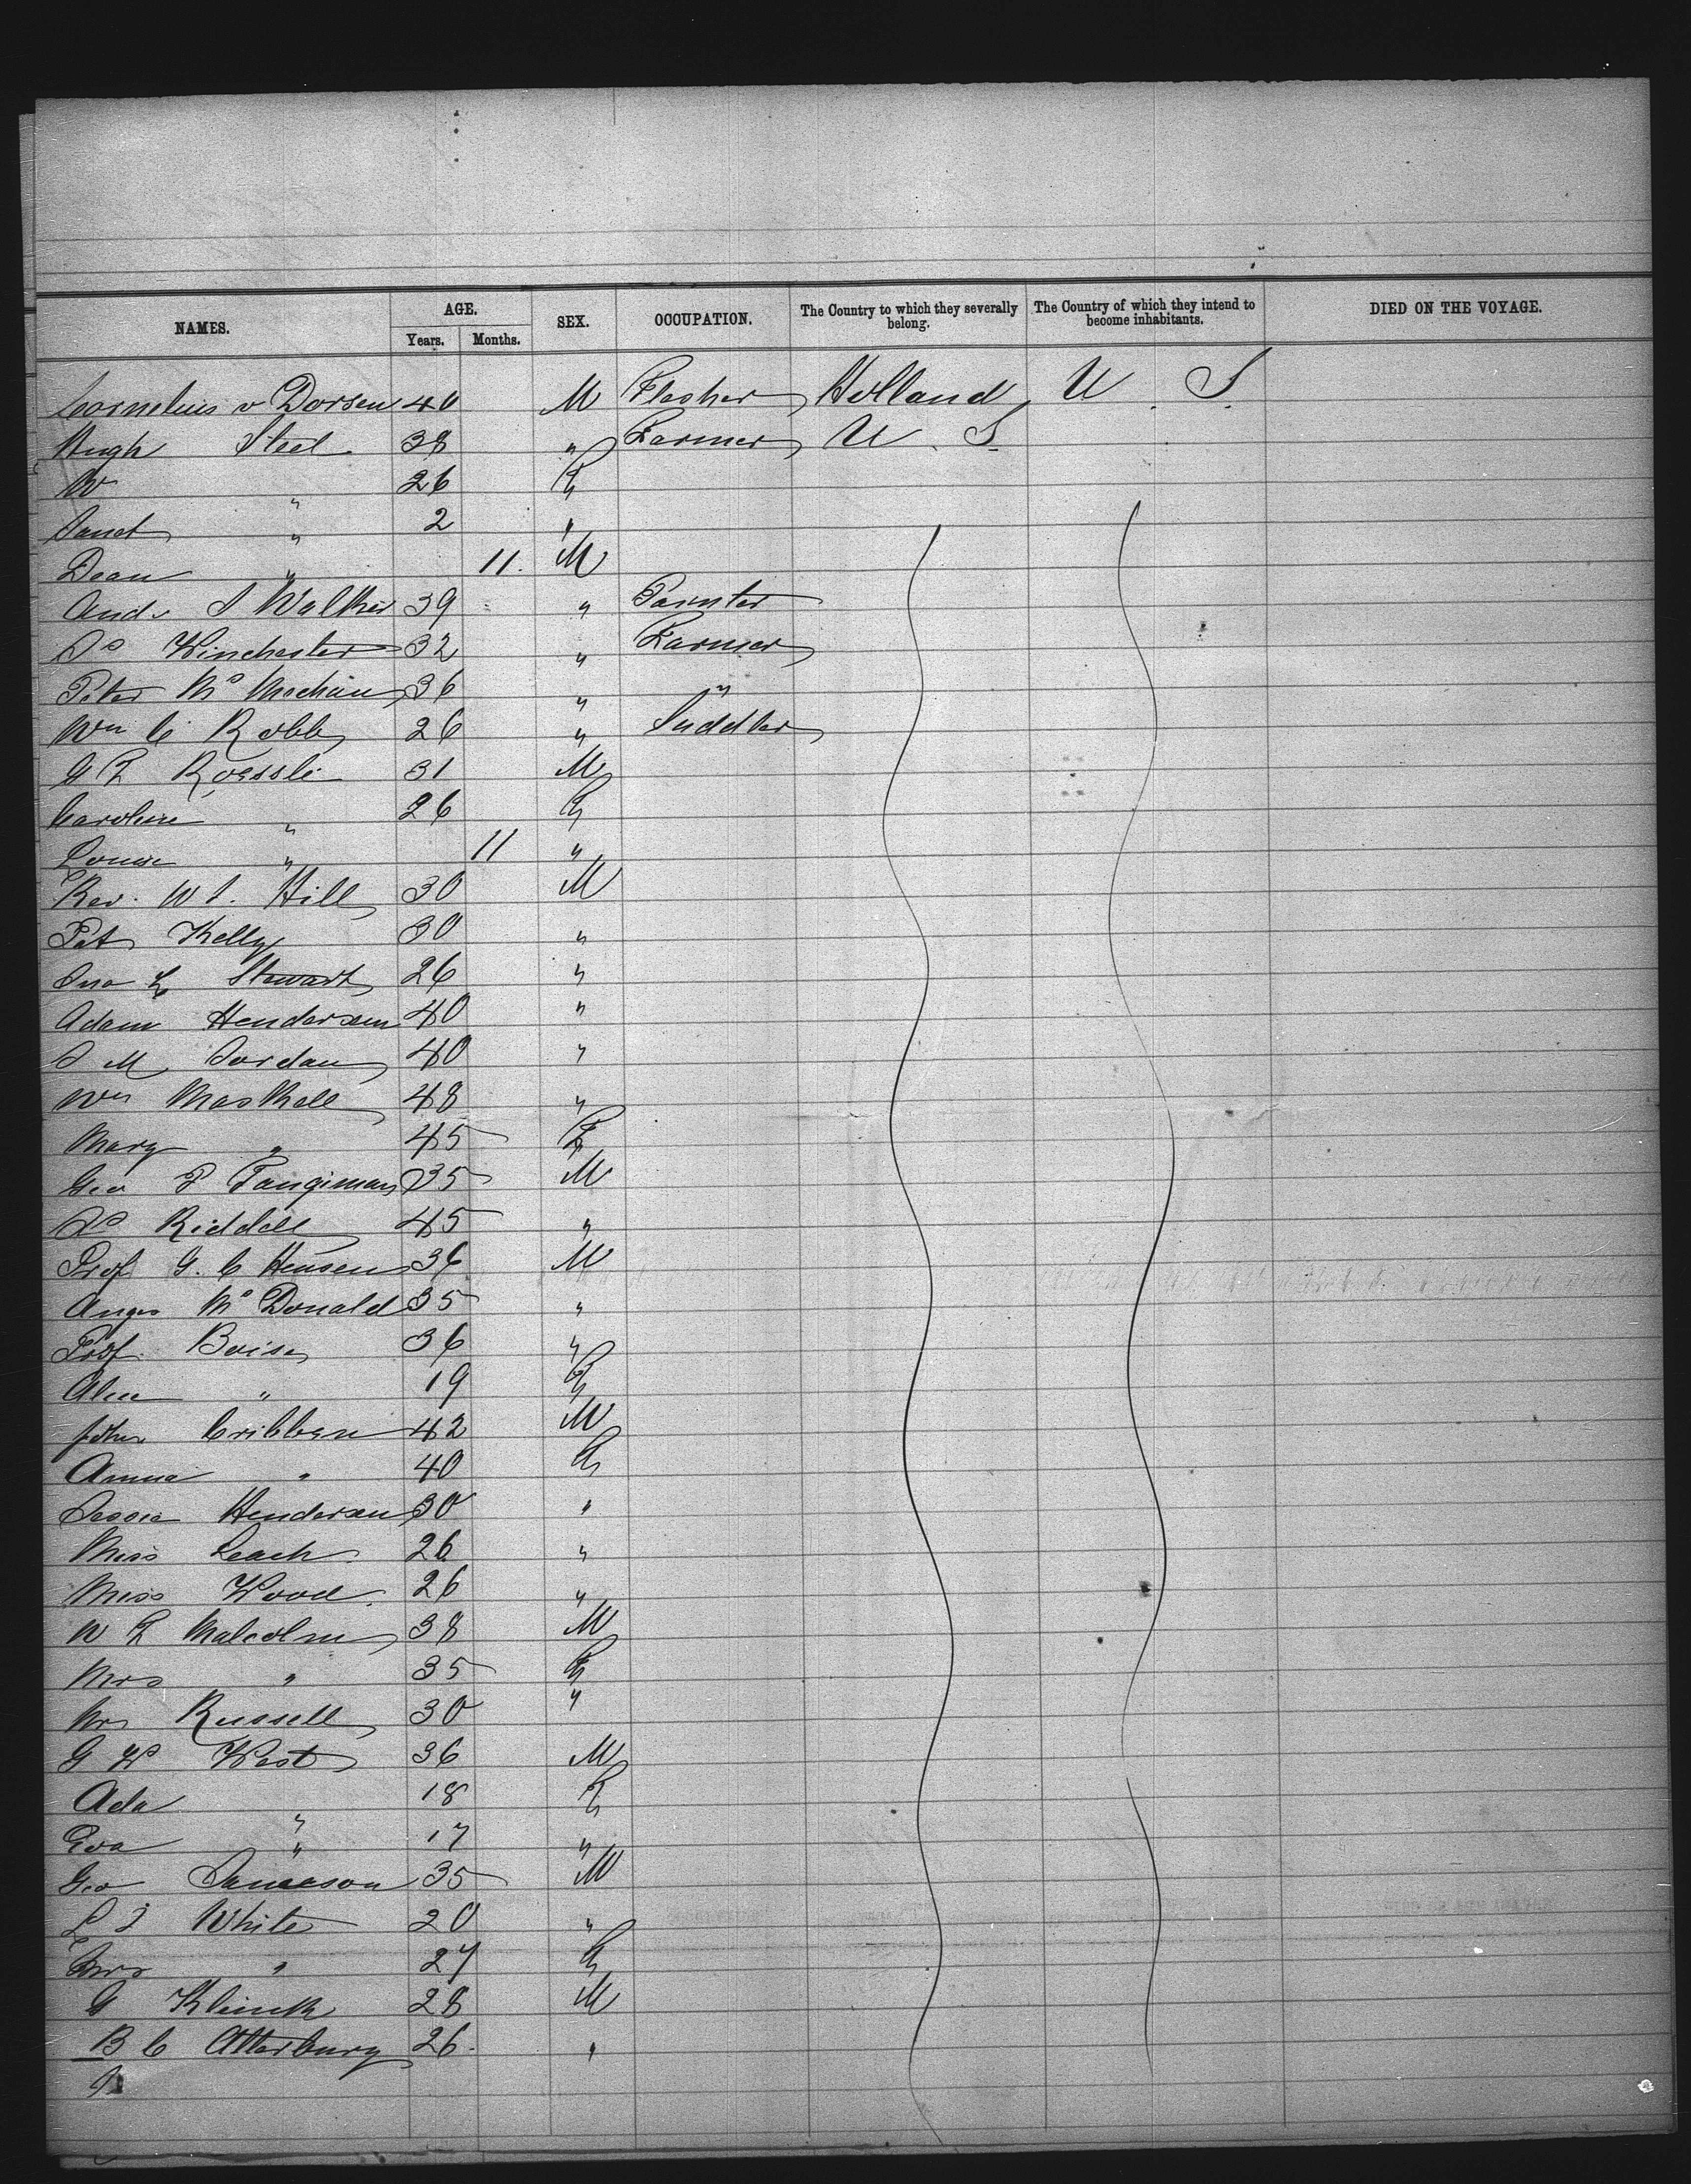 NAMES. AGE. SEX. OCCUPATION. The Country to which they severally belong. The Country of which they intend to become inhabitants. DIED ON THE VOYAGE.
Years. Months.
Cornelius v Dorsen 40 M Flesher Holland U S
Hugh Steel 38 " Farmer U S
W " 26 F
Janet " 2 "
Dean " 11. M
Andw J Walker 39 " Painter
Js Winchester 32 " Farmer
Peter Mc 36 " "
Wm C Robb 26 " Saddler
G F Roessle 31 M
Caroline " 26 F
Louise " 11 "
Rev. W J. Hill 30 M
Pat Kelly 30 "
Jno Stewart 26 "
Adam Henderson 40 "
J M Jordan 40 "
Wm Maskell 48 "
Mary " 45 F
Geo P 35 M
Js Riddell 45 "
Prof G. C Hensen 36 M
Angus Mc Donald 35 "
Prof. Boise 36 "
Alice " 19 F
John Cribben 42 M
Anna " 40 F
Jessie Henderson 30 "
Miss Leach 26 "
Miss Wood 26 "
W F Malcolm 38 M
Mrs " 35 F
Mrs Russell 30 "
G W West 36 M
Ada " 18 F
Eva " 17 "
Geo Jameson 35 M
L J White 20 "
Mrs " 27 F
G Klinck 28 M
B C Atterbury 26. "